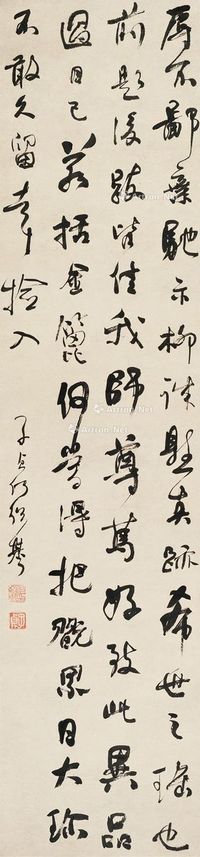 辱不鄙棄馳示柳誠懸真跡希世之瑤也
前題後跋皆佳我師尊篤好致此異品
過目已若括金篦何嘗得把翫累日大珍
不敢久留幸撿入
子貞何紹基
Artron.Net